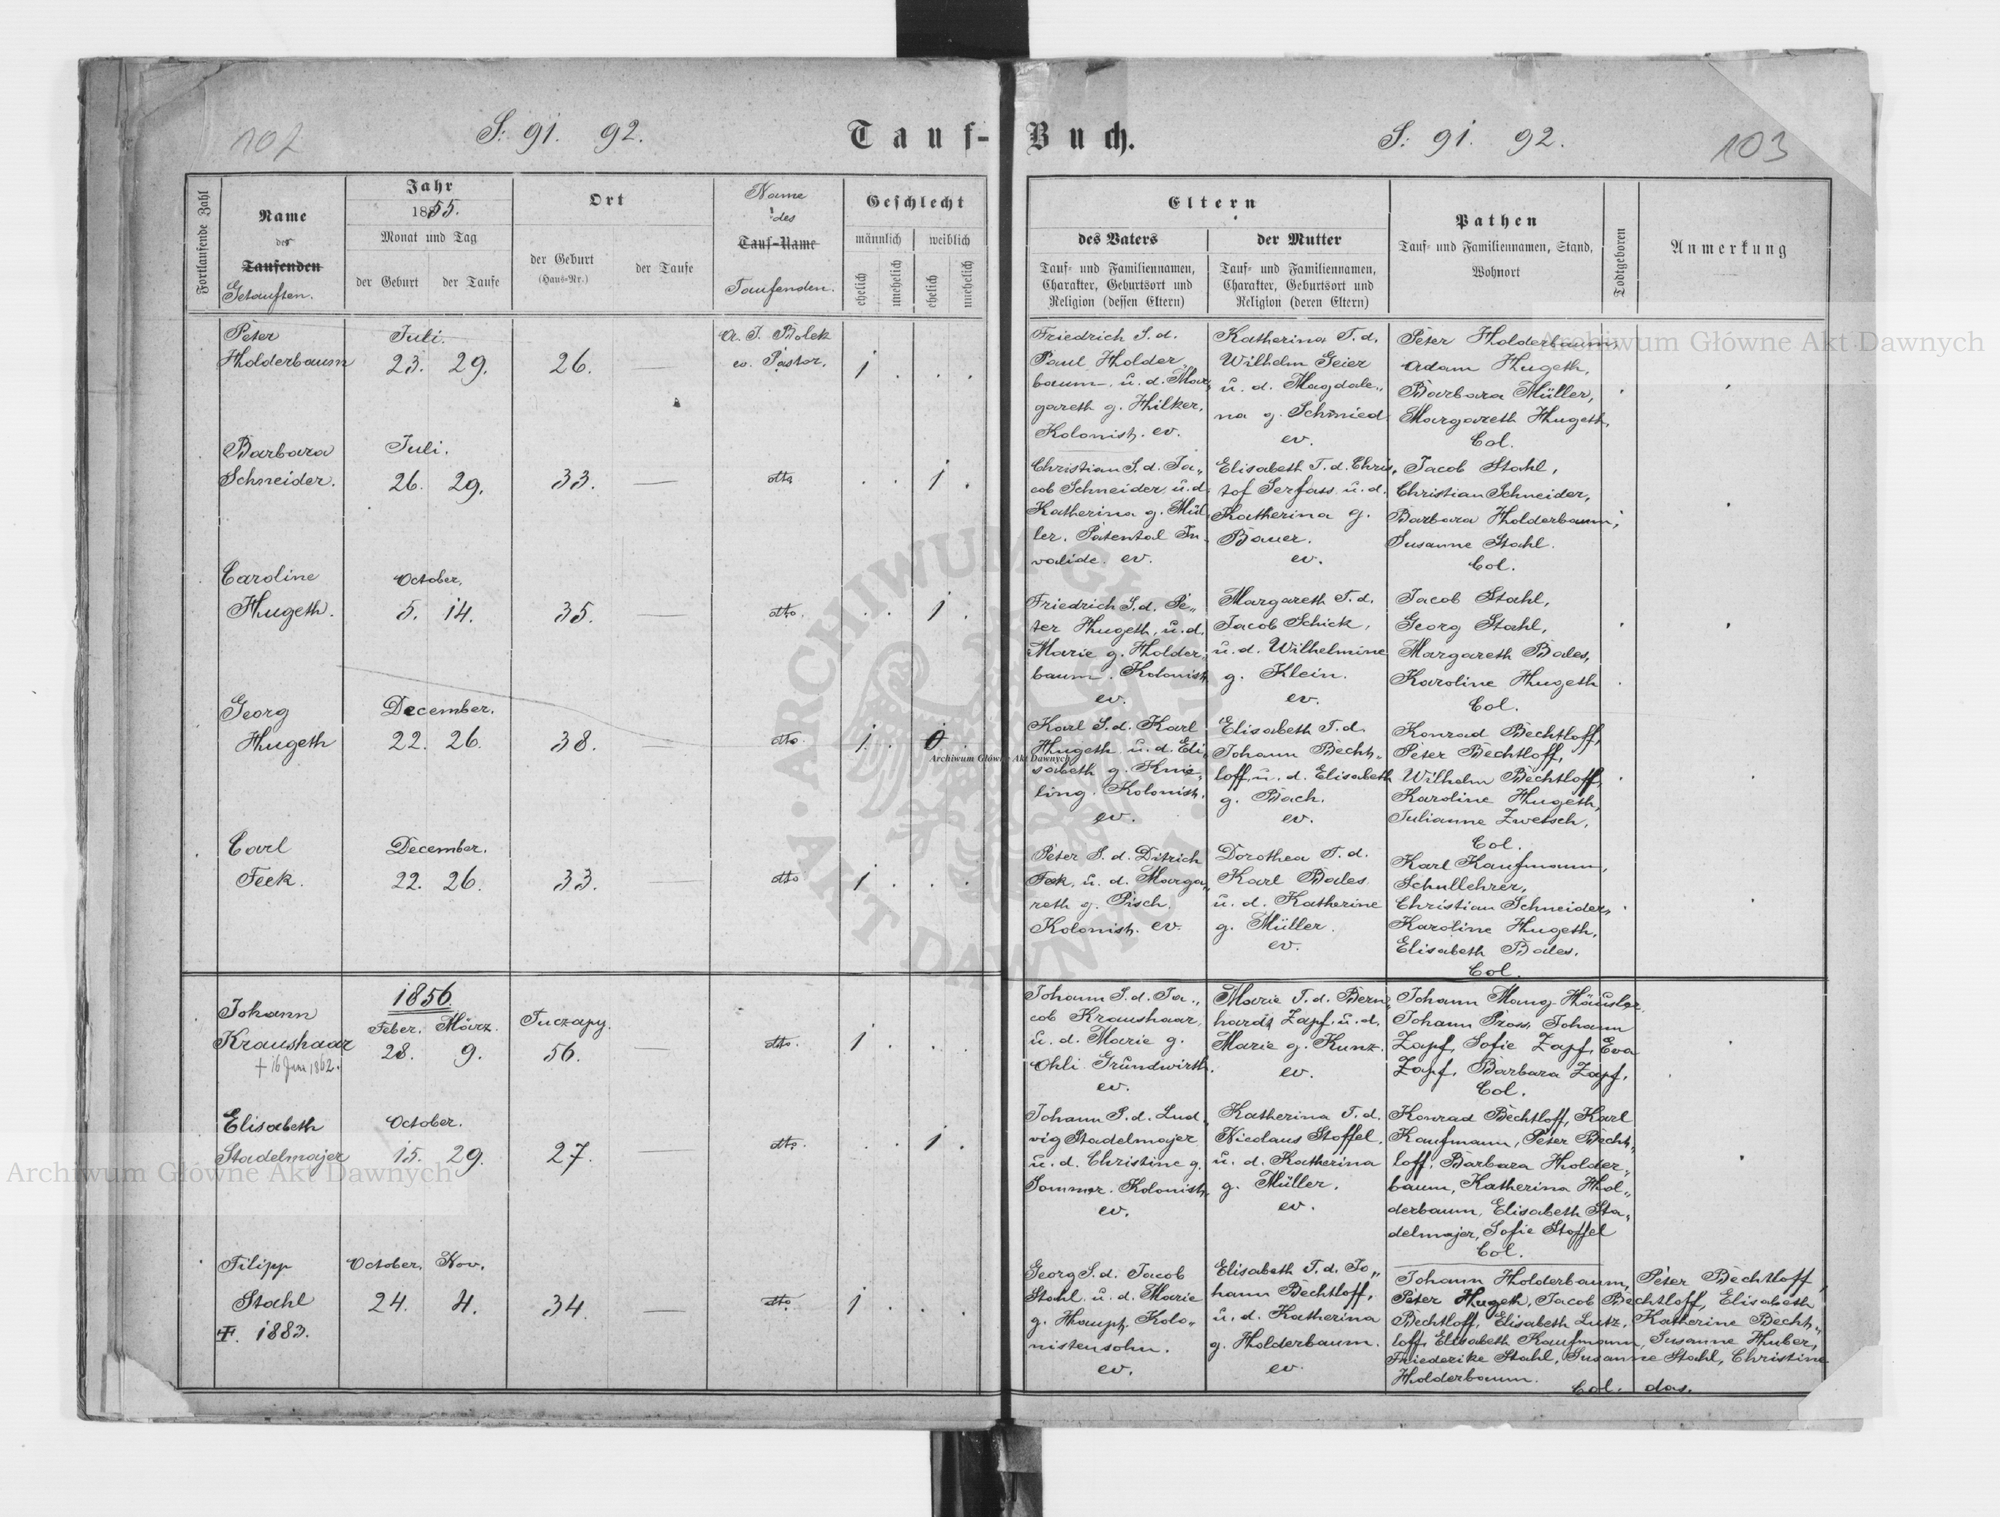 102
S: 91. 92.
Tauf-
Buch.
S: 91. 92.
103
Fortlaufende Zahl
Name
des
Taufenden
Getauften.
Jahr
1855.
Monat und Tag
der Geburt
der Taufe
Ort
der Geburt
(Haus-Nr.)
der Taufe
Name
des
Tauf-Name
Taufenden.
Geschlecht
männlich
weiblich
ehelich
unehelich
ehelich
unehelich
Eltern
des Vaters
Tauf- und Familiennamen,
Charakter, Geburtsort und
Religion (dessen Eltern)
der Mutter
Tauf- und Familiennamen,
Charakter, Geburtsort und
Religion (deren Eltern)
Pathen
Tauf- und Familiennamen, Stand,
Wohnort
Todtgeboren
Anmerkung
Peter
Holderbaum
Juli.
23. 29.
26.
—
A. J. Bolek
ev. Pastor.
1 . . .
Friedrich S. d.
Paul Holder
baum u. d. Mar
gareth g. Hilker,
Kolonist. ev.
Katherina T. d.
Wilhelm Geier
u. d. Magdale„
na g. Schmied
ev.
Peter Holderbaum,
Adam Hugeth,
Barbara Müller,
Margareth Hugeth,
Col.
Barbara
Schneider.
Juli.
26. 29.
33.
—
dto
. . 1 .
Christian S. d. Ja„
cob Schneider, u. d.
Katherina g. Mül
ler. Patental In
valide. ev.
Elisabeth T. d. Chris„
tof Serfass u. d.
Katherina g.
Bauer.
ev.
Jacob Stahl,
Christian Schneider,
Barbara Holderbaum,
Susanne Stahl.
Col.
Caroline
Hugeth.
October.
5. 14.
35.
—
dto.
. . 1 .
Friedrich S. d. Pe„
ter Hugeth, u. d.
Marie g. Holder
baum. Kolonist
ev.
Margareth T. d.
Jacob Schick,
u. d. Wilhelmine
g. Klein.
ev.
Jacob Stahl,
Georg Stahl,
Margareth Bales,
Karoline Hugeth
Col.
Georg
Hugeth
December.
22. 26.
38.
—
dto.
1 . 0 .
Karl S. d. Karl
Hugeth u. d. Eli„
sabeth g. Knie„
ling. Kolonist.
ev.
Elisabeth T. d.
Johann Becht„
loff, u. d. Elisabeth
g. Bach.
ev.
Konrad Bechtloff,
Peter Bechtloff,
Wilhelm Bechtloff,
Karoline Hugeth,
Julianne Zwetsch,
Col.
Carl
Feck.
December.
22. 26.
33.
—
dto
1 . . .
Peter S. d. Ditrich
Feck, u. d. Marga„
reth g. Pisch.
Kolonist. ev.
Dorothea T. d.
Karl Bales
u. d. Katherine
g. Müller.
ev.
Karl Kaufmann,
Schullehrer,
Christian Schneider,
Karoline Hugeth,
Elisabeth Bales.
Col.
Johann
Kraushaar
† 16 Jun 1862.
1856.
Feber. März.
28. 9.
Tuczapy.
56.
—
dto.
1 . . .
Johann S. d. Ja„
cob Kraushaar,
u. d. Marie g.
Ohli Grundwirth.
ev.
Marie T. d. Bern
hardt Zapf. u. d.
Marie g. Kunz.
ev.
Johann Mang Häusler
Johann Pross, Johann
Zapf, Sofie Zapf, Eva
Zapf, Barbara Zapf.
Col.
Elisabeth
Stadelmajer
October.
15. 29.
27.
—
dto.
. . 1 .
Johann S. d. Lud
vig Stadelmajer
u. d. Christine g.
Sommer. Kolonist,
ev.
Katherina T. d.
Nicolaus Stoffel.
u. d. Katherina
g. Müller.
ev.
Konrad Bechtloff, Karl
Kaufmann, Peter Becht„
loff, Barbara Holder„
baum, Katherina Hol„
derbaum, Elisabeth Sta„
delmajer, Sofie Stoffel
Col.
Filipp
Stahl
†. 1883.
October. Nov.
24. 4.
34
—
dto.
1 . . .
Georg S. d. Jacob
Stahl u. d. Marie
g. Haupt, Kolo„
nistensohn.
ev.
Elisabeth T. d. Jo„
hann Bechtloff,
u. d. Katherina
g. Holderbaum.
ev
Johann Holderbaum, Peter Bechtloff,
Peter Hugeth, Jacob Bechtloff, Elisabeth
Bechtloff, Elisabeth Lutz, Katherine Becht„
loff, Elisabeth Kaufmann, Susanne Huber,
Friederike Stahl, Susanne Stahl, Christine
Holderbaum.
Col. das.
Archiwum Główne Akt Dawnych
Archiwum Główne Akt Dawnych
Archiwum Główne Akt Dawnych